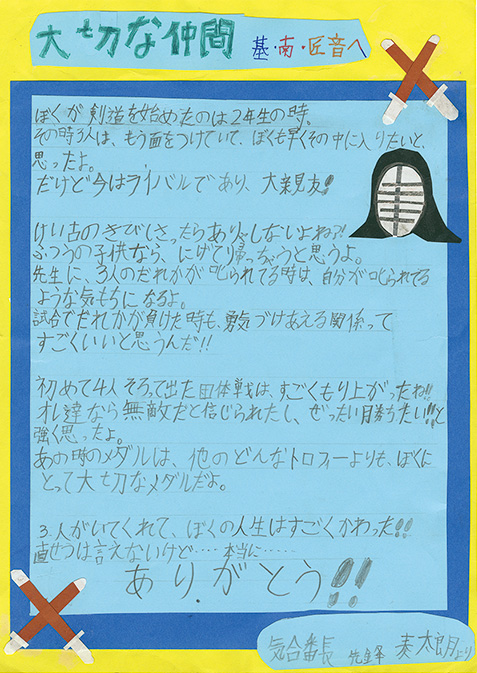 大切な仲間
基・南・匠音へ
ぼくが剣道を始めたのは2年生の時。
その時3人は、もう面をつけていて、ぼくも早くその中に入りたいと、
思ったよ。
だけど今はライバルであり、大親友!!
けい古のきびしさったらありゃしないよね?!
ふつうの子供なら、にげて帰っちゃうと思うよ。
先生に、3人のだれかが叱られてる時は、自分が叱られてる
ような気もちになるよ。
試合でだれかが負けた時も、勇気づけあえる関係って
すごくいいと思うんだ!!
初めて4人そろって出た団体戦は、すごくもり上がったね!!
オレ達なら無敵だと信じられたし、ぜったい勝ちたい!!と
強く思ったよ。
あの時のメダルは、他のどんなトロフィーよりも、ぼくに
とって大切なメダルだよ。
3人がいてくれて、ぼくの人生はすごくかわった!!
直せつは言えないけど……本当に……
ありがとう!!
気合番長
太朗より